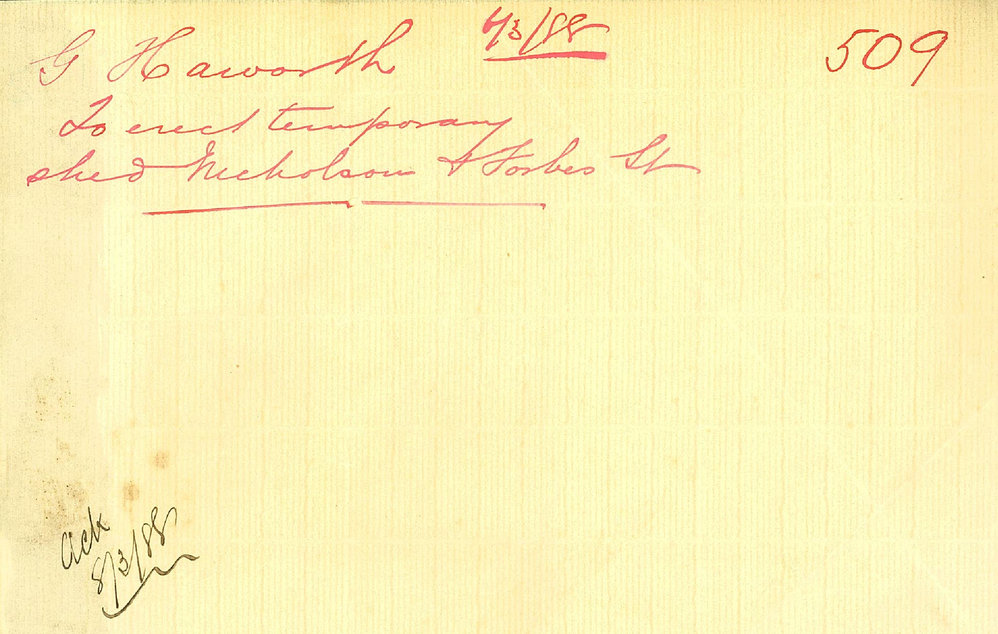 G Haworth 7/3/88 509
To erect temporary
shed Nicholson & Forbes St
Ack
8/3/88